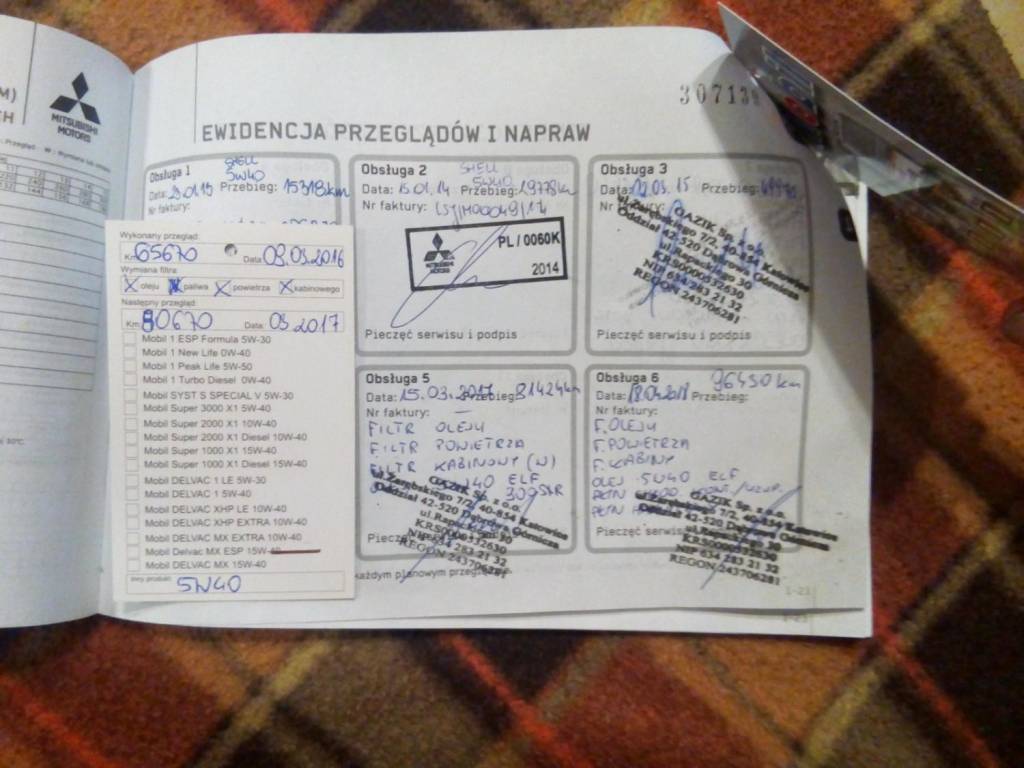 MITSUBISHI
MOTORS
307139
EWIDENCJA PRZEGLĄDÓW I NAPRAW
Obsługa 1
SHELL
5W40
Data: Przebieg: 15318km
Nr faktury:
Obsługa 2
SHELL
5W40
Data: 15.01.14 Przebieg: 19778km
Nr faktury:
MITSUBISHI
MOTORS
PL / 0060K
2014
Pieczęć serwisu i podpis
Obsługa 3
Data: 03.15 Przebieg:
Nr faktury:
GAZIK Sp. z o.o.
ul.Zarębskiego 7/2, 40-854 Katowice
Oddział 42-520 Dąbrowa Górnicza
ul.Rapackiego 30
KRS0000332630
NIP 634 283 21 32
REGON 243706281
Pieczęć serwisu i podpis
Wykonany przegląd:
Km 65670 Data: 03.03.2016
Wymiana filtra:
X oleju X paliwa X powietrza X kabinowego
Następny przegląd:
Km 80670 Data: 03.2017
Mobil 1 ESP Formula 5W-30
Mobil 1 New Life 0W-40
Mobil 1 Peak Life 5W-50
Mobil 1 Turbo Diesel 0W-40
Mobil SYST S SPECIAL V 5W-30
Mobil Super 3000 X1 5W-40
Mobil Super 2000 X1 10W-40
Mobil Super 2000 X1 Diesel 10W-40
Mobil Super 1000 X1 15W-40
Mobil Super 1000 X1 Diesel 15W-40
Mobil DELVAC 1 LE 5W-30
Mobil DELVAC 1 5W-40
Mobil DELVAC XHP LE 10W-40
Mobil DELVAC XHP EXTRA 10W-40
Mobil DELVAC MX EXTRA 10W-40
Mobil Delvac MX ESP 15W-40
Mobil DELVAC MX 15W-40
Inny produkt: 5W40
Obsługa 5
Data: 15.03.2017 Przebieg: 81424km
Nr faktury: —
FILTR OLEJU
FILTR POWIETRZA
FILTR KABINOWY (W)
5W40 ELF
GAZIK Sp. z o.o.
ul.Zarębskiego 7/2, 40-854 Katowice
Oddział 42-520 Dąbrowa Górnicza
ul.Rapackiego 30
KRS0000332630
NIP 634 283 21 32
REGON 243706281
każdym planowym
Obsługa 6
Data: Przebieg: 96430 km
Nr faktury:
F. OLEJU
F. POWIETRZA
F. KABINY
OLEJ 5W40 ELF
PŁYN
PŁYN
GAZIK Sp. z o.o.
ul.Zarębskiego 7/2, 40-854 Katowice
Oddział 42-520 Dąbrowa Górnicza
ul.Rapackiego 30
KRS0000332630
NIP 634 283 21 32
REGON 243706281
1-21